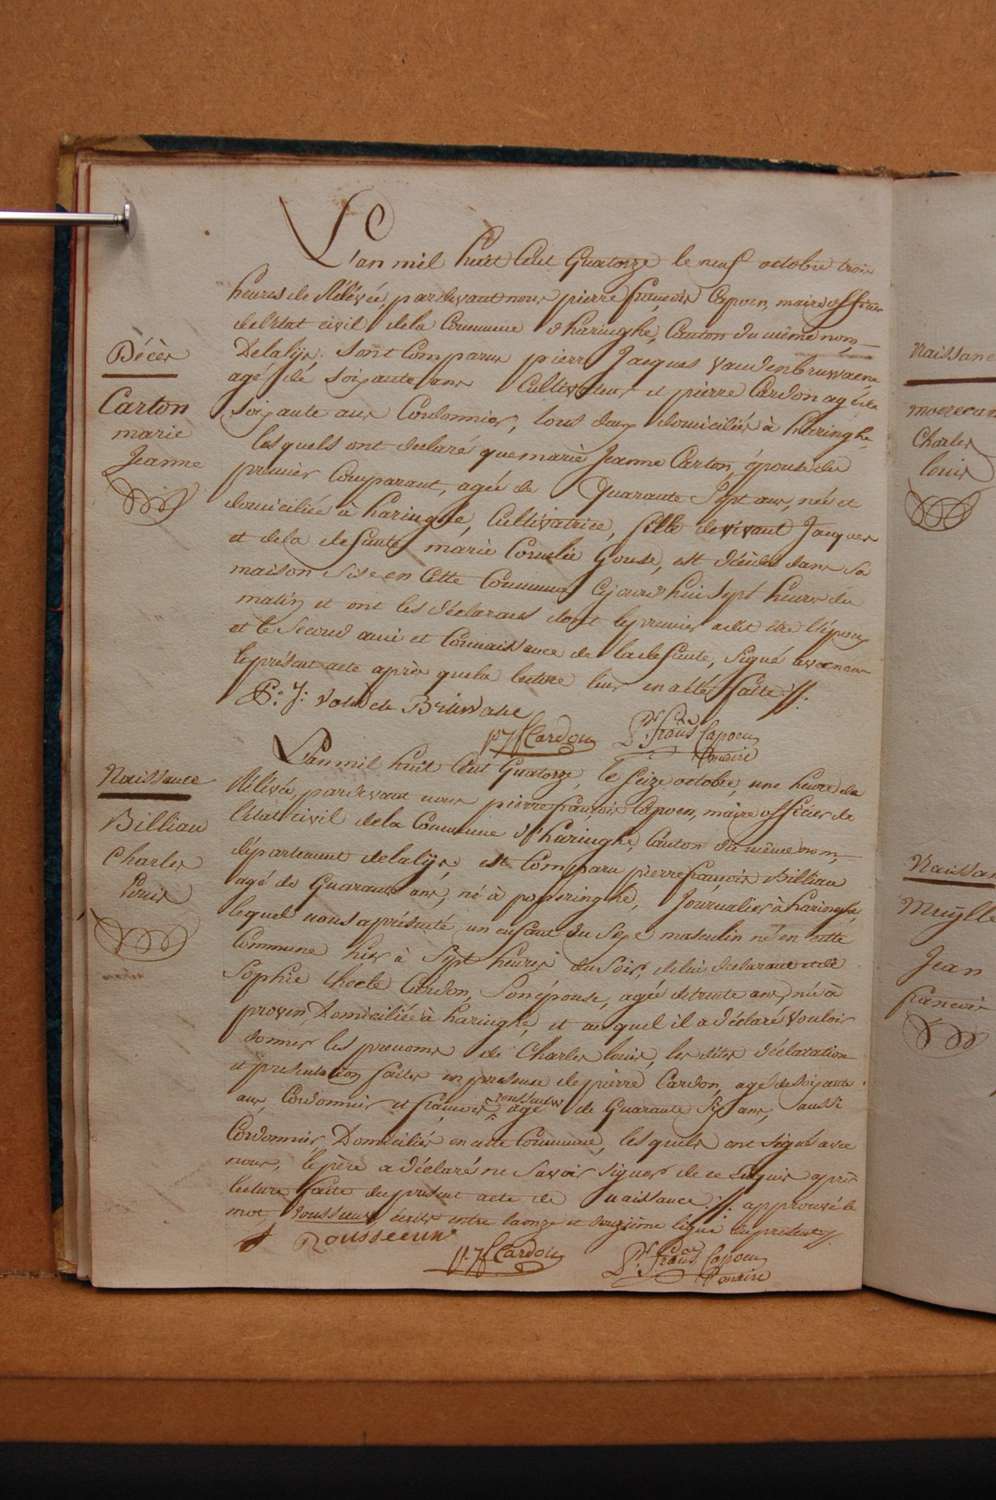 Décès
Carton
marie
Jeanne
L'an mil huit Cent Quatorze le neuf octobre trois
heures de Rélevée, pardevant nous pierre françois Capoen, maire officier
de l'Etat civil de la Commune d'haringhe, Canton du même nom,
De la lijs. Sont Comparus pierre Jacques Vandenbruwaene
agé de Soixante ans Cultivateur et pierre Cardon agé de
Soixante ans Cordonnier, tous deux domiciliés à haringhe,
lesquels ont declaré que marie Jeanne Carton, épouse du
premier Comparant, agée de Quarante Sept ans, née et
domiciliée à haringhe, Cultivatrice, fille de vivant Jacques
et de la defunte marie Cornelie Gouse, est décédée dans sa
maison Sise en Cette Commune Cejourd'hui Sept heures du
matin, et ont les déclarans dont le premier a dit être l'époux
et le Second ami et Connaissance de la defunte, Signé avec nous
le présent acte après que la lecture leur en a été faite.
P. J. Van de Bruwane
p. J. Cardon
Pr. Frans Capoen
maire
Naissance
Billiau
Charles
Louis
L'an mil huit Cent Quatorze, le Seize octobre, une heure de
Rélévée, pardevant nous pierre françois Capoen, maire officier de
l'Etat civil de la Commune d'haringhe, Canton du même nom,
département de la lijs, est Comparu pierre françois Billiau
agé de Quarante ans, né à poperinghe, Journalier à haringhe,
lequel nous a présenté un enfant du Sexe masculin né en cette
Commune hier à Sept heures du Soir, de lui declarant et de
Sophie thecle Cardon, Son épouse, agée de trente ans, née à
proven, Domiciliée à haringhe, et auquel il a déclaré vouloir
donner les prenoms de Charles louis, les dites déclaration
et presentation faites en presence de pierre Cardon, agé de Soixante
ans, Cordonnier et françois rousseeuw agé de Quarante Six ans, aussi
Cordonnier, Domiciliés en cette Commune, lesquels ont Signé avec
nous, le père a déclaré ne Savoir Signer de ce requis après
lecture faite du present acte de naissance. approuvé le
mot, rousseeuw, écrits entre la onze et douzième ligne du present
Rousseeuw
p. J. Cardon
Pr. Frans Capoen
maire
Naissan
Charles
louis
Naissan
Meÿlle
Jean
francois